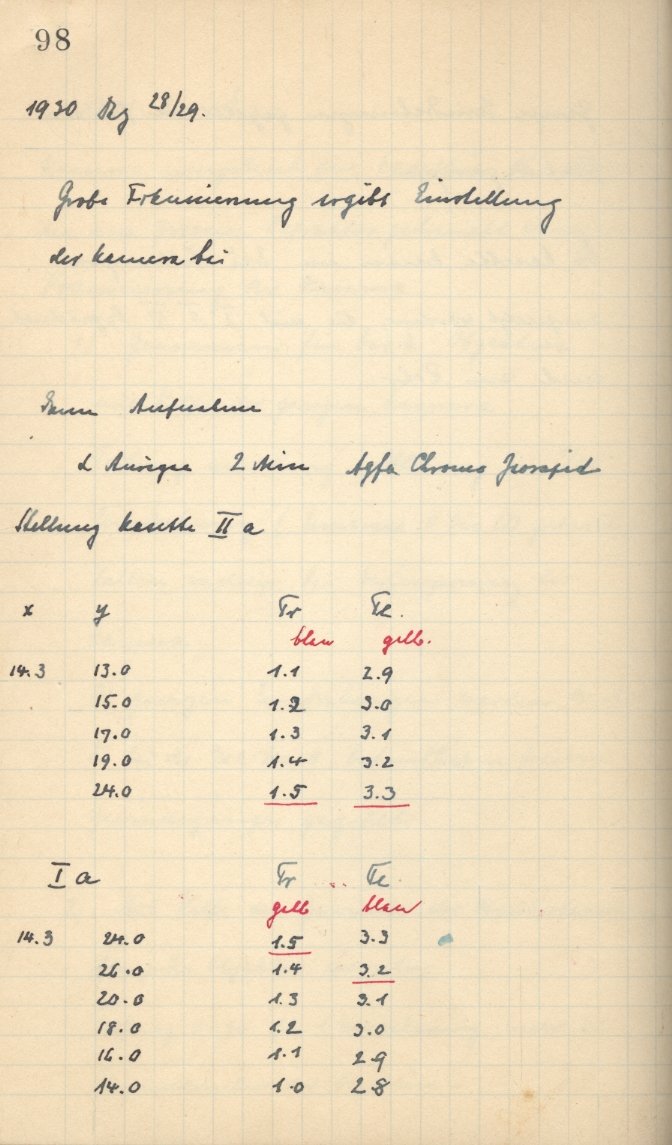 98
1930 Dez 28/29.
Grobe Fokussierung ergibt Einstellung
der Kamera bei
Dann Aufnahme
α Aurigae 2 Min Agfa Chromo Isorapid
Stellung Kasette II a
x y Tr Te.
blau gelb.
14.3 13.0 1.1 2.9
15.0 1.2 3.0
17.0 1.3 3.1
19.0 1.4 3.2
24.0 1.5 3.3
I a Tr Te
gelb blau
14.3 24.0 1.5 3.3
26.0 1.4 3.2
20.0 1.3 3.1
18.0 1.2 3.0
16.0 1.1 2.9
14.0 1.0 2.8